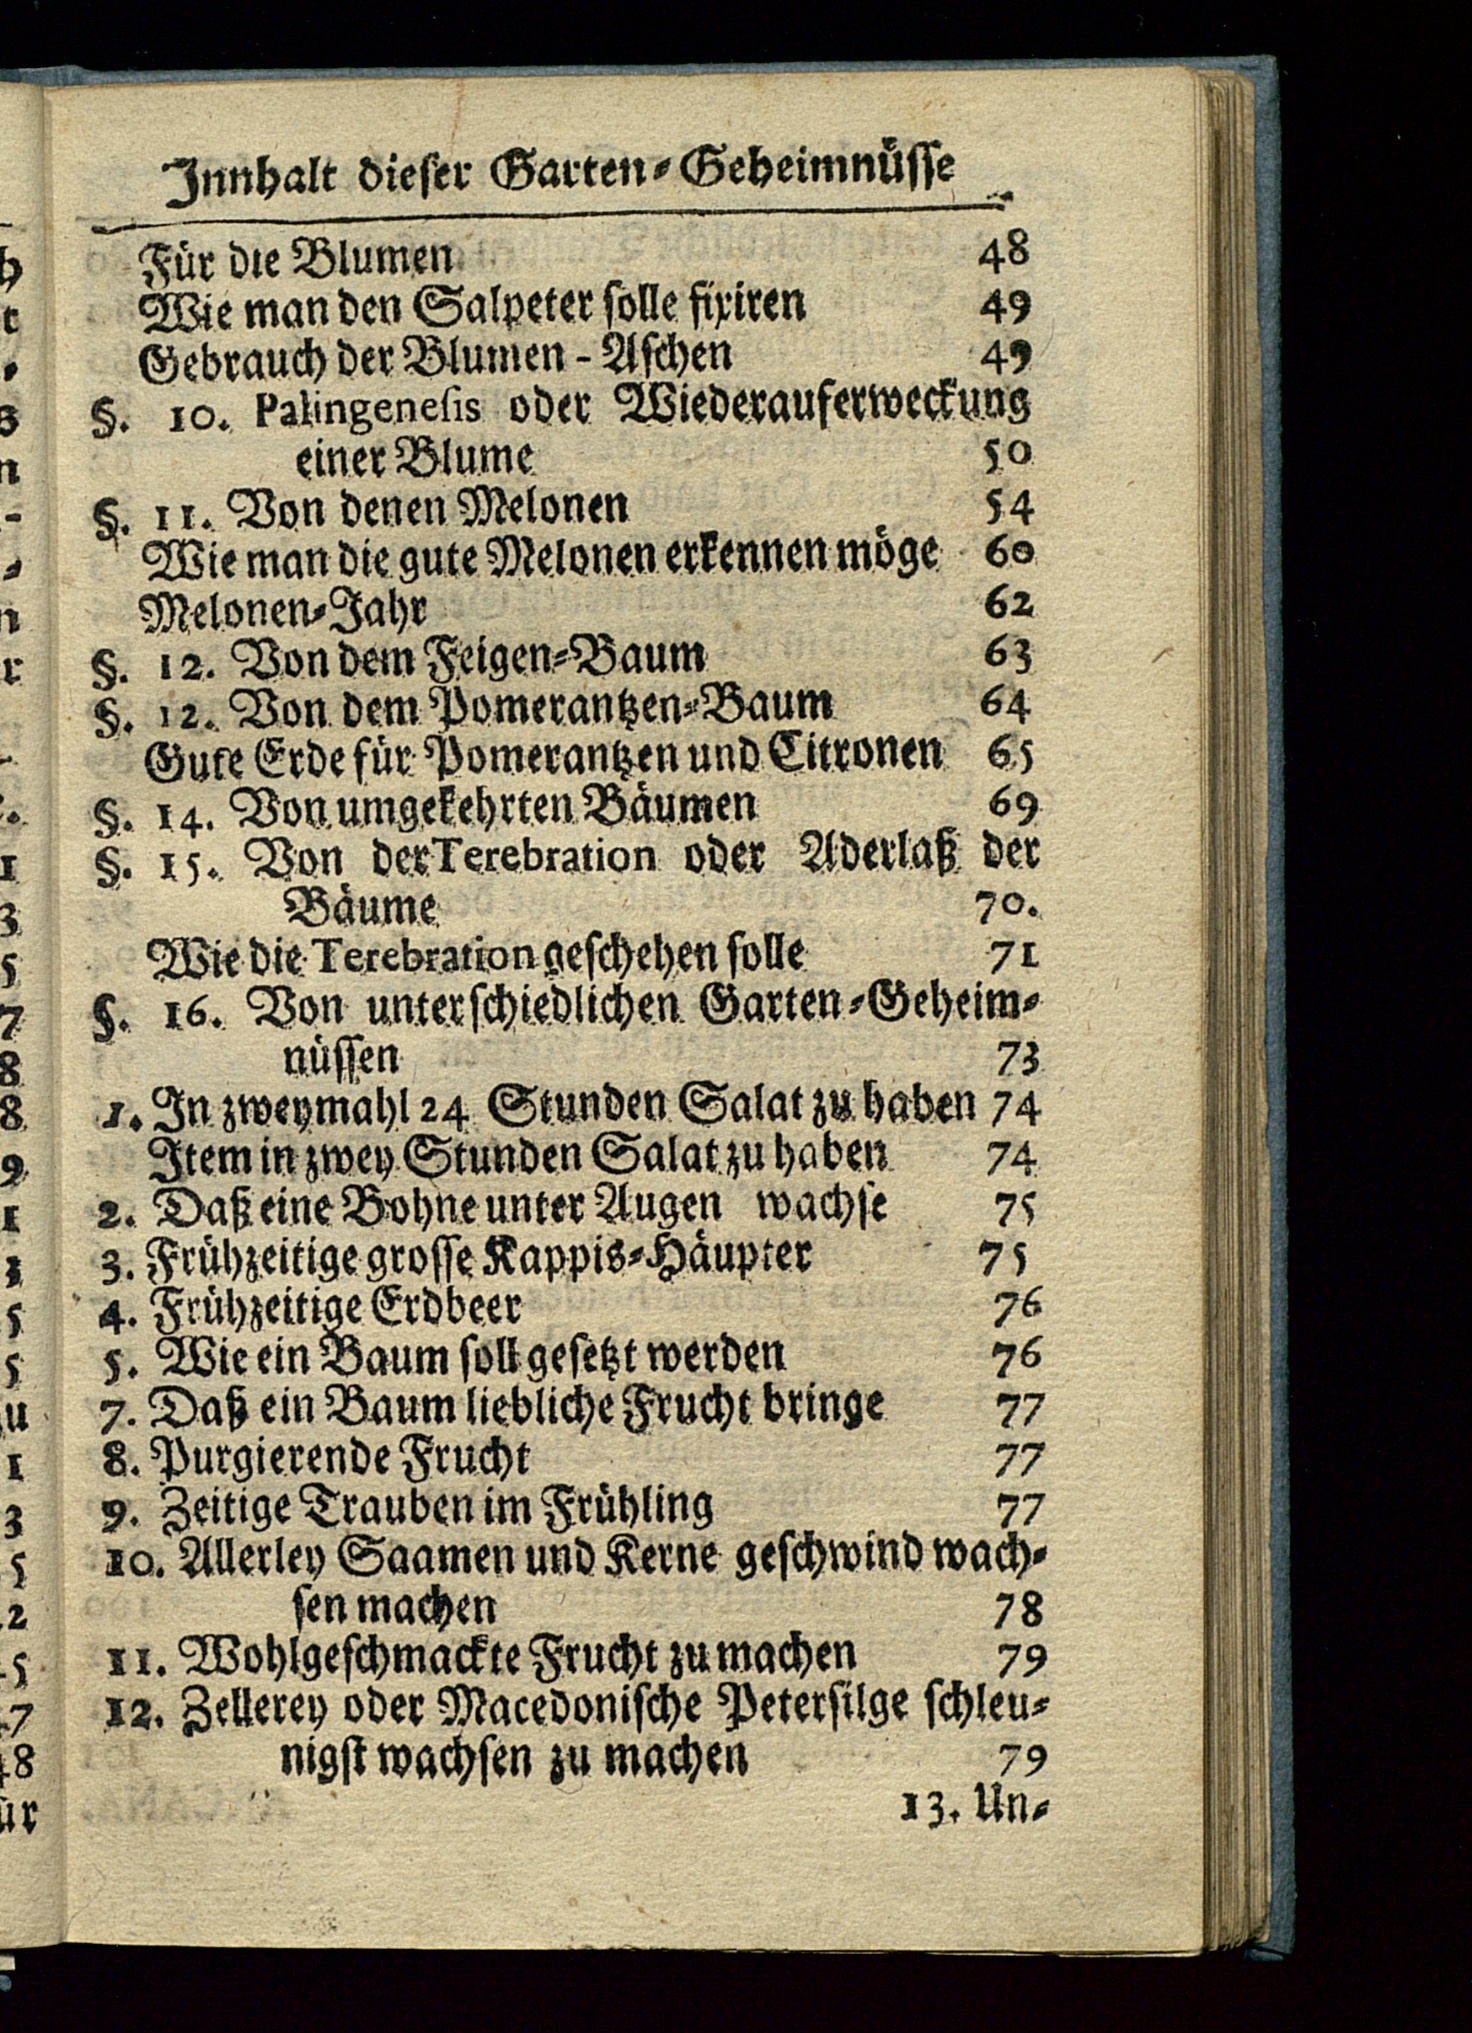 Innhalt dieser Garten-Geheimnüsse
Für die Blumen 48
Wie man den Salpeter solle fixiren 49
Gebrauch der Blumen - Aschen 49
§. 10. Palingenesis oder Wiederauferweckung
einer Blume 50
§. 11. Von denen Melonen 54
Wie man die gute Melonen erkennen möge 60
Melonen-Jahr 62
§. 12. Von dem Feigen-Baum 63
§. 12. Von dem Pomerantzen-Baum 64
Gute Erde für Pomerantzen und Citronen 65
§. 14. Von umgekehrten Bäumen 69
§. 15. Von der Terebration oder Aderlaß der
Bäume 70.
Wie die Terebration geschehen solle 71
§. 16. Von unterschiedlichen Garten-Geheim-
nüssen 73
1. In zweymahl 24 Stunden Salat zu haben 74
Item in zwey Stunden Salat zu haben 74
2. Daß eine Bohne unter Augen wachse 75
3. Frühzeitige grosse Kappis-Häupter 75
4. Frühzeitige Erdbeer 76
5. Wie ein Baum soll gesetzt werden 76
7. Daß ein Baum liebliche Frucht bringe 77
8. Purgierende Frucht 77
9. Zeitige Trauben im Frühling 77
10. Allerley Saamen und Kerne geschwind wach-
sen machen 78
11. Wohlgeschmackte Frucht zu machen 79
12. Zellerey oder Macedonische Petersilge schleu-
nigst wachsen zu machen 79
13. Un-